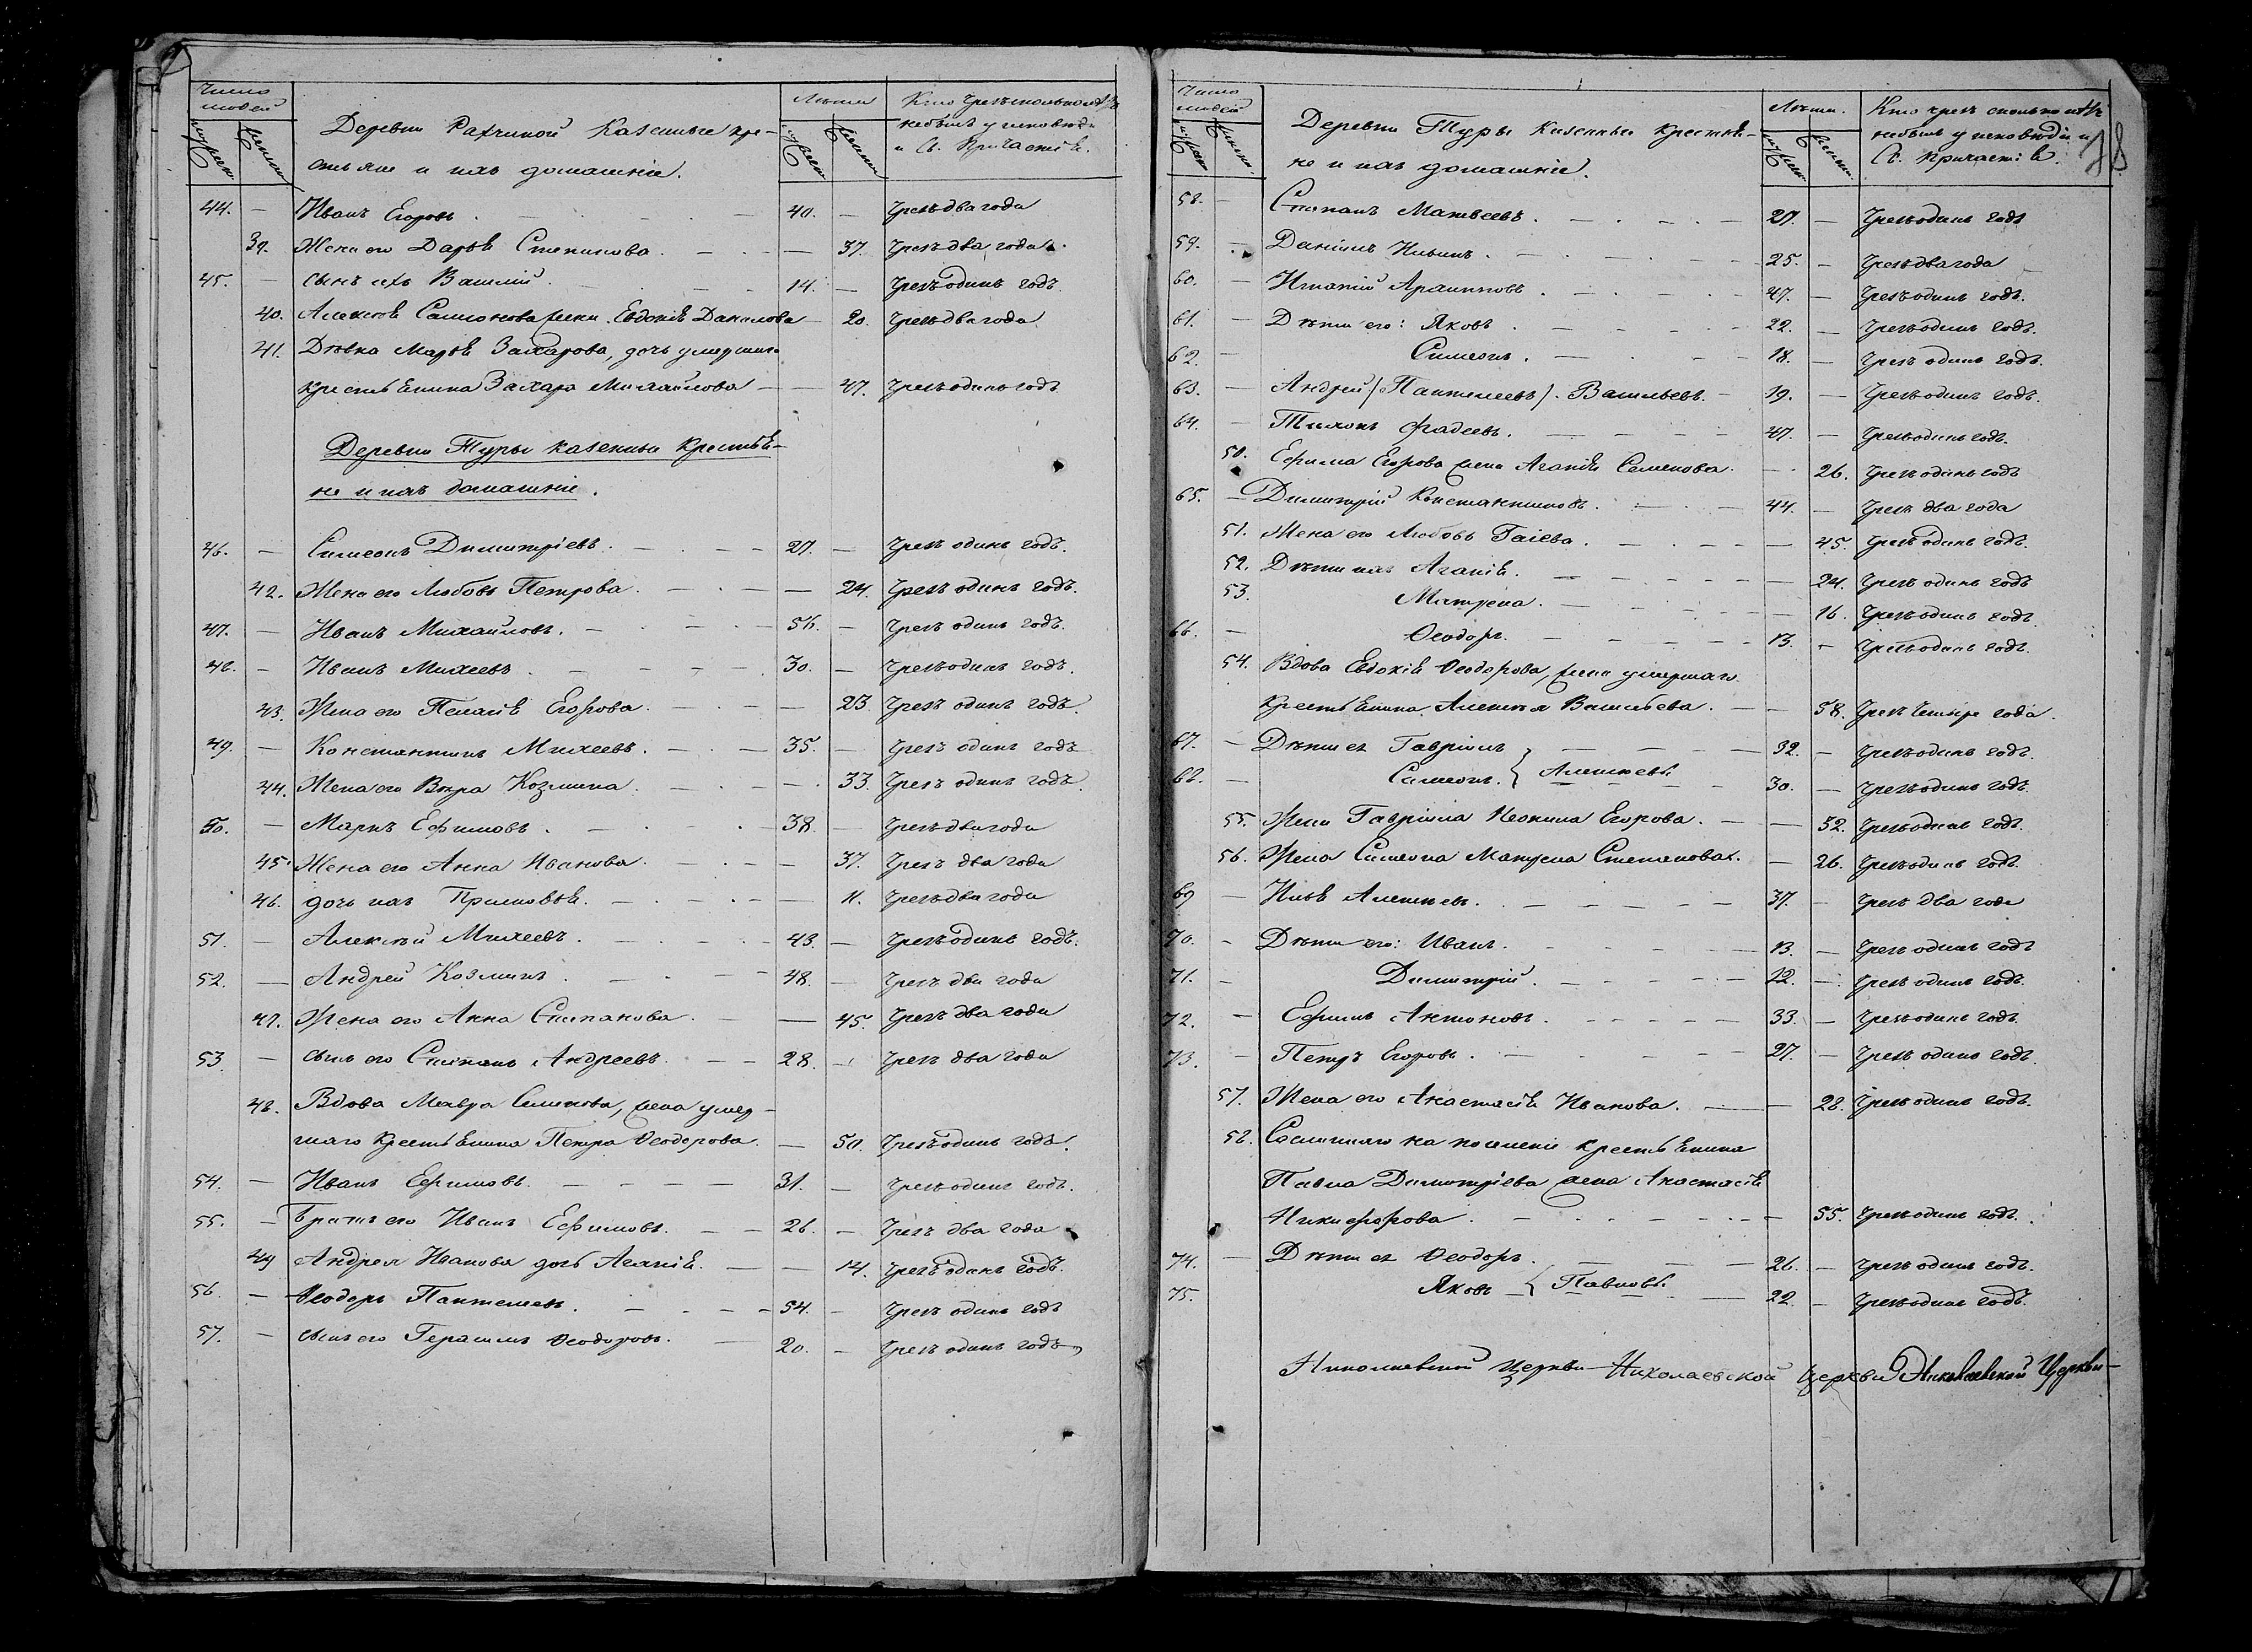 Число людей
мужес.
женск.
Деревни Рахчиной Казенные кре-
стьяне и ихъ домашніе.
Лѣта
мужес.
женск.
Кто чрезъ сколько лѣтъ
небылъ у исповѣди
и Св. Причастія.
44. — Иванъ Егоровъ. 40. — Чрезъ два года
39. Жена его Дарья Степанова. — 37. Чрезъ два года.
45. — сынъ ихъ Василій. 14. — Чрезъ одинъ годъ
40. Алексѣя Самсонова жена Евдокія Данилова 20. Чрезъ два года
41. Дѣвка Марья Захарова, дочь умершаго
крестьянина Захара Михайлова — 47. Чрезъ одинъ годъ
Деревни Туры казенные крестья-
не и ихъ домашніе.
46. — Симеонъ Димитріевъ. 27. — Чрезъ одинъ годъ.
42. Жена его Любовь Петрова. — 24. Чрезъ одинъ годъ.
47. — Иванъ Михайловъ. 56. — Чрезъ одинъ годъ.
48. — Иванъ Михеевъ. 30. — Чрезъ одинъ годъ.
43. Жена его Пелагія Егорова. — 23. Чрезъ одинъ годъ.
49. — Константинъ Михеевъ. 35. — Чрезъ одинъ годъ
44. Жена его Вѣра Козмина. — 33. Чрезъ одинъ годъ.
50. — Маркъ Ефимовъ. 38. — Чрезъ два года
45. Жена его Анна Иванова. — 37. Чрезъ два года
46. дочь ихъ — 11. Чрезъ два года
51. — Алексѣй Михеевъ. 43. — Чрезъ одинъ годъ.
52. — Андрей Козминъ. 48. — Чрезъ два года
47. Жена его Анна Степанова. — 45. Чрезъ два года
53. — сынъ его Степанъ Андреевъ. 28. — Чрезъ два года
48. Вдова Мавра Семенова, жена умер-
шаго крестьянина Петра Ѳеодорова. — 50. Чрезъ одинъ годъ.
54. — Иванъ Ефимовъ. 31. — Чрезъ одинъ годъ.
55. — Братъ его Иванъ Ефимовъ. 26. — Чрезъ два года
49 Андрея Иванова дочь Агапія. — 14. Чрезъ одинъ годъ.
56. — Ѳеодоръ Пантелеевъ. 54. — Чрезъ одинъ годъ
57. — сынъ его Герасимъ Ѳеодоровъ. 20. — Чрезъ одинъ годъ
Число людей
мужес.
женск.
Деревни Туры Казенные крестья-
не и ихъ домашніе.
Лѣта.
мужес.
женск.
Кто чрезъ сколько лѣтъ
небылъ у исповѣди и
Св. причастія.
78
58. — Степанъ Матвеевъ. 27. — Чрезъ одинъ годъ
59. — Даніилъ Ильинъ. 25. — Чрезъ два года
60. — Игнатій Архиповъ. 47. — Чрезъ одинъ годъ.
61. — Дѣти его: Яковъ. 22. — Чрезъ одинъ годъ.
62. — Симеонъ. 18. — Чрезъ одинъ годъ.
63. — Андрей (Пантелеевъ). Васильевъ. 19. — Чрезъ одинъ годъ.
64. — Тихонъ Фадеевъ. 47. — Чрезъ одинъ годъ.
50. Ефима Егорова жена Агапія Семенова. — 26. Чрезъ одинъ годъ
65. — Димитрій Константиновъ. 44. — Чрезъ два года
51. Жена его Любовь Гаіева. — 45. Чрезъ одинъ годъ.
52. Дѣти ихъ Агапія. — 24. Чрезъ одинъ годъ
53. Матрена. — 16. Чрезъ одинъ годъ.
66. — Ѳеодоръ. 13. — Чрезъ одинъ годъ.
54. Вдова Евдокія Ѳеодорова, жена умершаго
крестьянина Алексѣя Васильева. — 58. Чрезъ четыре года.
67. — Дѣти ея Гавріилъ 32. — Чрезъ одинъ годъ.
68. — Симеонъ. } Алексѣевы 30. — Чрезъ одинъ годъ.
55. Жена Гавріила Неонила Егорова. — 32. Чрезъ одинъ годъ.
56. Жена Симеона Матрена Степанова. — 26. Чрезъ одинъ годъ.
69 — Илья Алексѣевъ. 37. — Чрезъ два года
70. — Дѣти его: Иванъ. 13. — Чрезъ одинъ годъ
71. — Димитрій. 12. — Чрезъ одинъ годъ.
72. — Ефимъ Антоновъ. 33. — Чрезъ одинъ годъ.
73. — Петръ Егоровъ. 27. — Чрезъ одинъ годъ.
57. Жена его Анастасія Иванова. — 28. Чрезъ одинъ годъ.
58. Сосланнаго на поселеніе крестьянина
Павла Димитріева жена Анастасія
Никифорова. — 55. Чрезъ одинъ годъ.
74. — Дѣти ея Ѳеодоръ. 26. — Чрезъ одинъ годъ.
75. Яковъ } Павловы. 22. — Чрезъ одинъ годъ.
Николаевской Церкви Николаевской церкви Николаевской Церкви